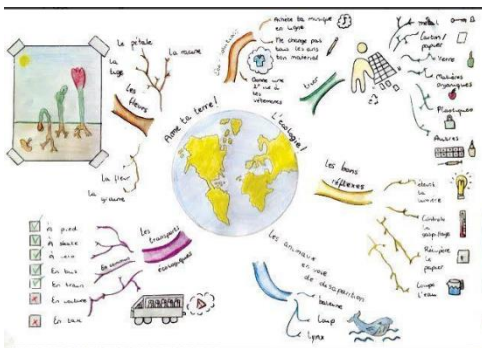 Aime ta terre!
L'écologie!
Les fleurs
Le pétale
La tige
La racine
La fleur
La graine
Achète ta musique
en ligne
Ne change pas
tous les ans
ton matériel
Donne une
2e vie à
tes
vêtements
Trier
métal
Carton/
papier
Verre
Matières
organiques
Plastiques
Autres
Les bons
réflexes
éteint la
lumière
Contrôle
le
gaspillage
Récupère
le
papier
Coupe
l'eau
Les animaux
en voie
de disparition
baleine
Loup
Lynx
Les transports
écologiques
En commun
À pied
À vélo
En bus
En train
En voiture